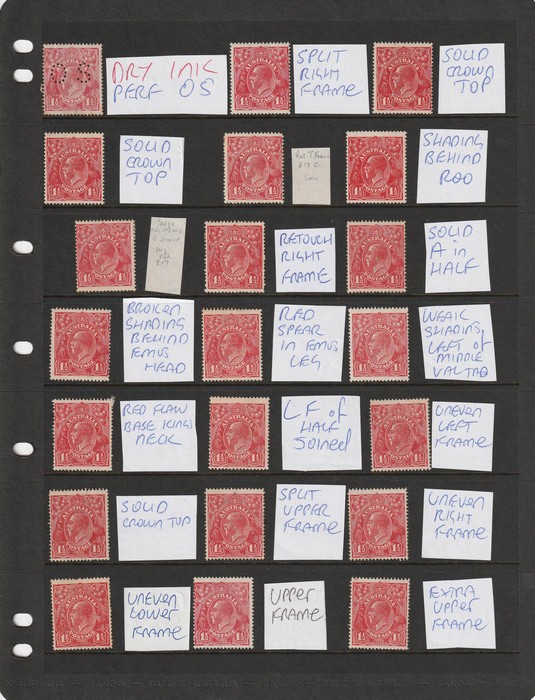 DRY INK
PERF OS
SPLIT
RIGHT
FRAME
SOLID
CROWN
TOP
SOLID
CROWN
TOP
SHADING
BEHIND
ROO
RETOUCH
RIGHT
FRAME
SOLID
A in
HALF
BROKEN
SHADING
BEHIND
EMUS
HEAD
RED
SPEAR
IN EMUS
LEG
WEAK
SHADING
LEFT of
MIDDLE
VALTAB
RED FLAW
BASE KINGS
NECK
LF of
HALF
JOINED
UNEVEN
LEFT
FRAME
SOLID
CROWN TOP
SPLIT
UPPER
FRAME
UNEVEN
RIGHT
FRAME
UNEVEN
LOWER
FRAME
UPPER
FRAME
EXTRA
UPPER
FRAME